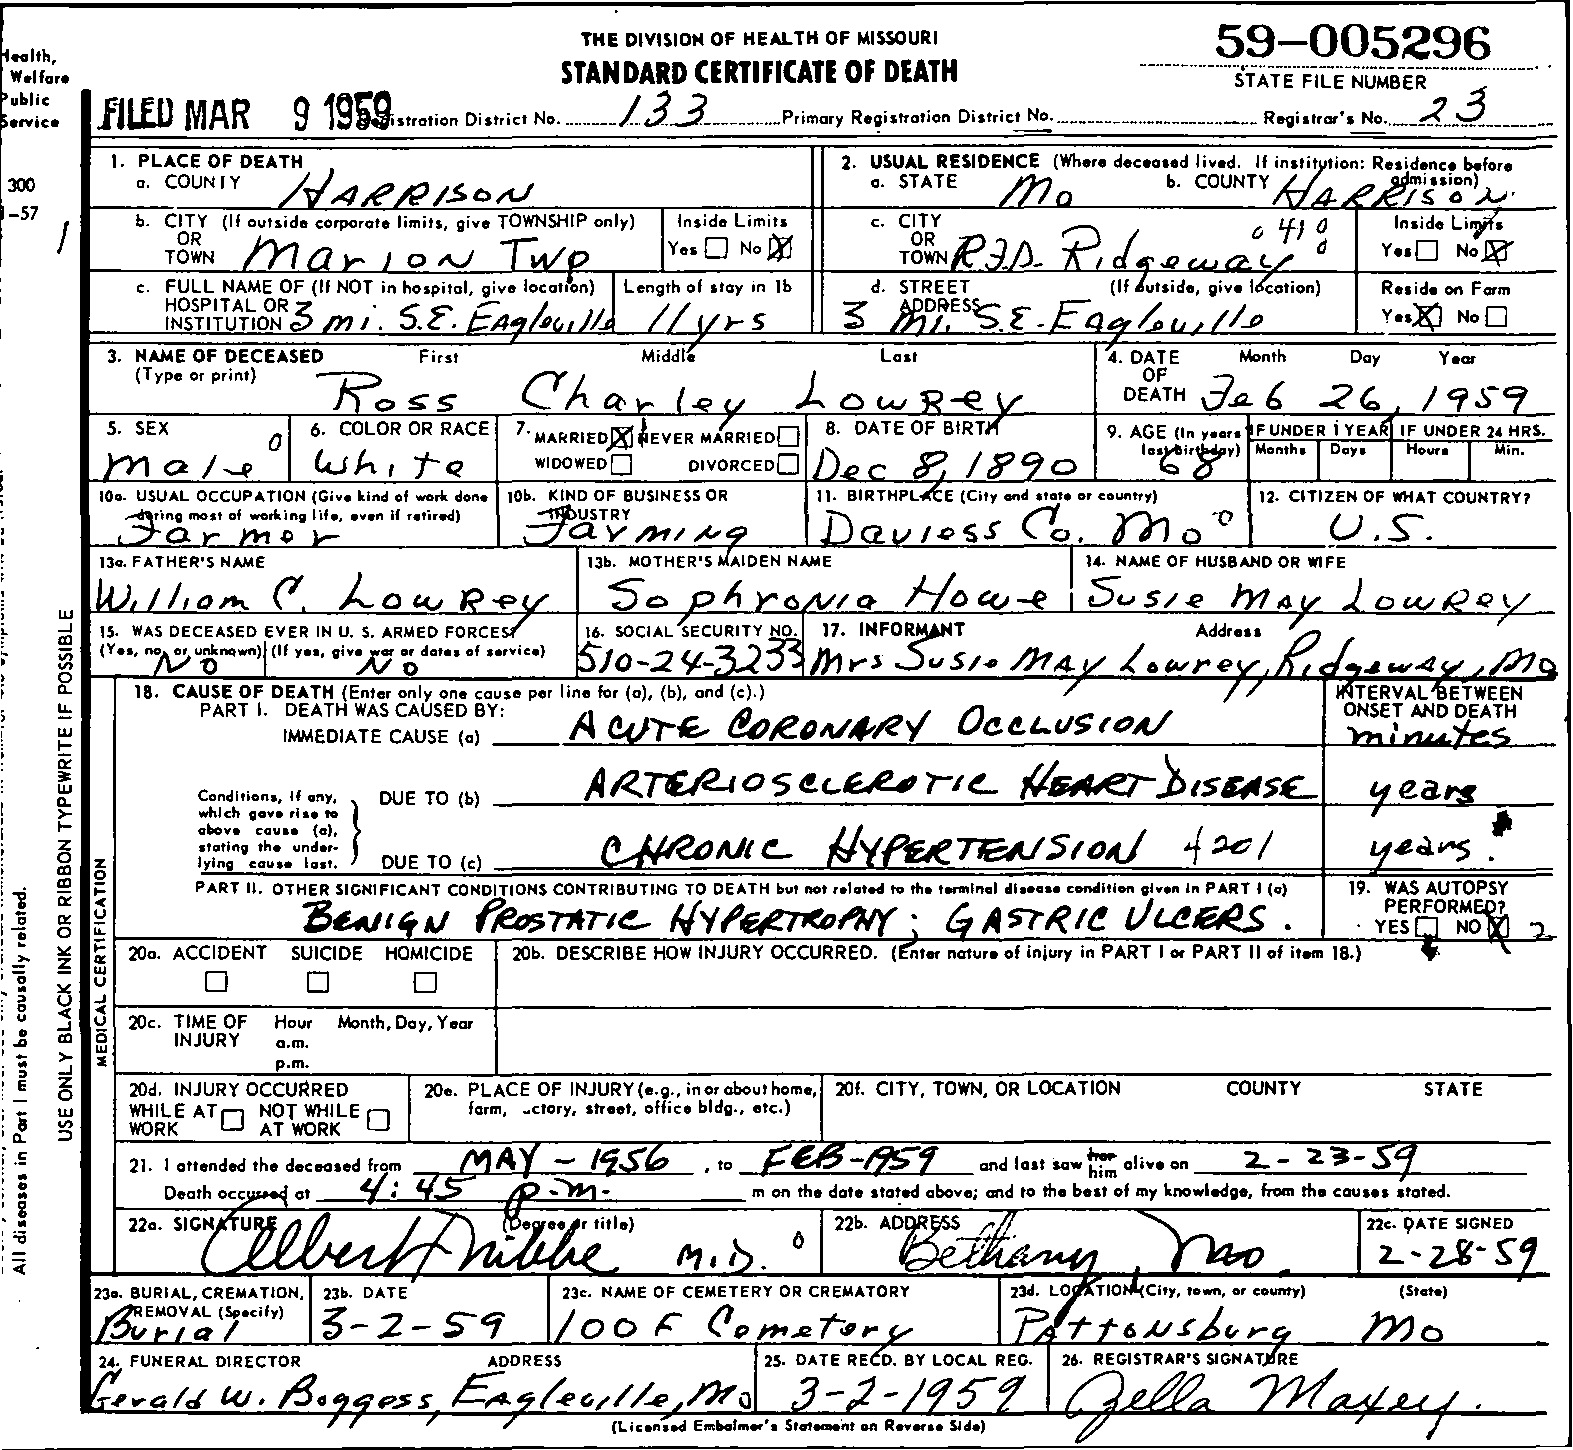 THE DIVISION OF HEALTH OF MISSOURI
STANDARD CERTIFICATE OF DEATH
59-005296
STATE FILE NUMBER
Health,
Welfare
Public
Service
FILED MAR 9 1959
Registration District No. 133 Primary Registration District No. Registrar's No. 23
300
1-57
1. PLACE OF DEATH
a. COUNTY HARRISON
2. USUAL RESIDENCE (Where deceased lived. If institution: Residence before admission)
a. STATE Mo b. COUNTY HARRISON
b. CITY (If outside corporate limits, give TOWNSHIP only) OR TOWN Marion Twp
Inside Limits
Yes No X
c. CITY OR TOWN R.F.D. Ridgeway
0410
0
Inside Limits
Yes No X
c. FULL NAME OF (If NOT in hospital, give location) HOSPITAL OR INSTITUTION 3 mi. S.E. Eagleville
Length of stay in 1b
11 yrs
d. STREET ADDRESS (If outside, give location)
3 mi. S.E. Eagleville
Reside on Farm
Yes X No
3. NAME OF DECEASED First Middle Last
(Type or print)
Ross Charley Lowrey
4. DATE OF DEATH Month Day Year
Feb 26, 1959
5. SEX
Male 0
6. COLOR OR RACE
White
7. MARRIED X NEVER MARRIED
WIDOWED DIVORCED
8. DATE OF BIRTH
Dec 8, 1890
9. AGE (In years last birthday)
68
IF UNDER 1 YEAR IF UNDER 24 HRS.
Months Days Hours Min.
10a. USUAL OCCUPATION (Give kind of work done during most of working life, even if retired)
Farmer
10b. KIND OF BUSINESS OR INDUSTRY
Farming
11. BIRTHPLACE (City and state or country)
Daviess Co. Mo 0
12. CITIZEN OF WHAT COUNTRY?
U.S.
13a. FATHER'S NAME
William C. Lowrey
13b. MOTHER'S MAIDEN NAME
Sophronia Howe
14. NAME OF HUSBAND OR WIFE
Susie May Lowrey
15. WAS DECEASED EVER IN U. S. ARMED FORCES?
(Yes, no, or unknown) (If yes, give war or dates of service)
No No
16. SOCIAL SECURITY NO.
510-24-3233
17. INFORMANT Address
Mrs Susie May Lowrey, Ridgeway, Mo
18. CAUSE OF DEATH (Enter only one cause per line for (a), (b), and (c).)
PART I. DEATH WAS CAUSED BY:
IMMEDIATE CAUSE (a) ACUTE CORONARY OCCLUSION
INTERVAL BETWEEN ONSET AND DEATH
minutes
Conditions, if any, which gave rise to above cause (a), stating the underlying cause last.
DUE TO (b) ARTERIOSCLEROTIC HEART DISEASE years
DUE TO (c) CHRONIC HYPERTENSION 4201 years.
PART II. OTHER SIGNIFICANT CONDITIONS CONTRIBUTING TO DEATH but not related to the terminal disease condition given in PART I (a)
BENIGN PROSTATIC HYPERTROPHY; GASTRIC ULCERS.
19. WAS AUTOPSY PERFORMED?
YES NO X 2
20a. ACCIDENT SUICIDE HOMICIDE
20b. DESCRIBE HOW INJURY OCCURRED. (Enter nature of injury in PART I or PART II of item 18.)
20c. TIME OF INJURY Hour Month, Day, Year
a.m.
p.m.
20d. INJURY OCCURRED
WHILE AT WORK NOT WHILE AT WORK
20e. PLACE OF INJURY (e.g., in or about home, farm, factory, street, office bldg., etc.)
20f. CITY, TOWN, OR LOCATION COUNTY STATE
21. I attended the deceased from MAY - 1956, to FEB-1959 and last saw her him alive on 2-23-59
Death occurred at 4:45 p.m. m on the date stated above; and to the best of my knowledge, from the causes stated.
22a. SIGNATURE (Degree or title)
M.D. 0
22b. ADDRESS
Bethany, Mo.
22c. DATE SIGNED
2-28-59
23a. BURIAL, CREMATION, REMOVAL (Specify)
Burial
23b. DATE
3-2-59
23c. NAME OF CEMETERY OR CREMATORY
IOOF Cemetery
23d. LOCATION (City, town, or county) (State)
Pattonsburg Mo
24. FUNERAL DIRECTOR ADDRESS
Gerald W. Boggess, Eagleville, Mo
25. DATE RECD. BY LOCAL REG.
3-2-1959
26. REGISTRAR'S SIGNATURE
Zella Maxey.
(Licensed Embalmer's Statement on Reverse Side)
MEDICAL CERTIFICATION
USE ONLY BLACK INK OR RIBBON TYPEWRITE IF POSSIBLE
All diseases in Part I must be causally related.